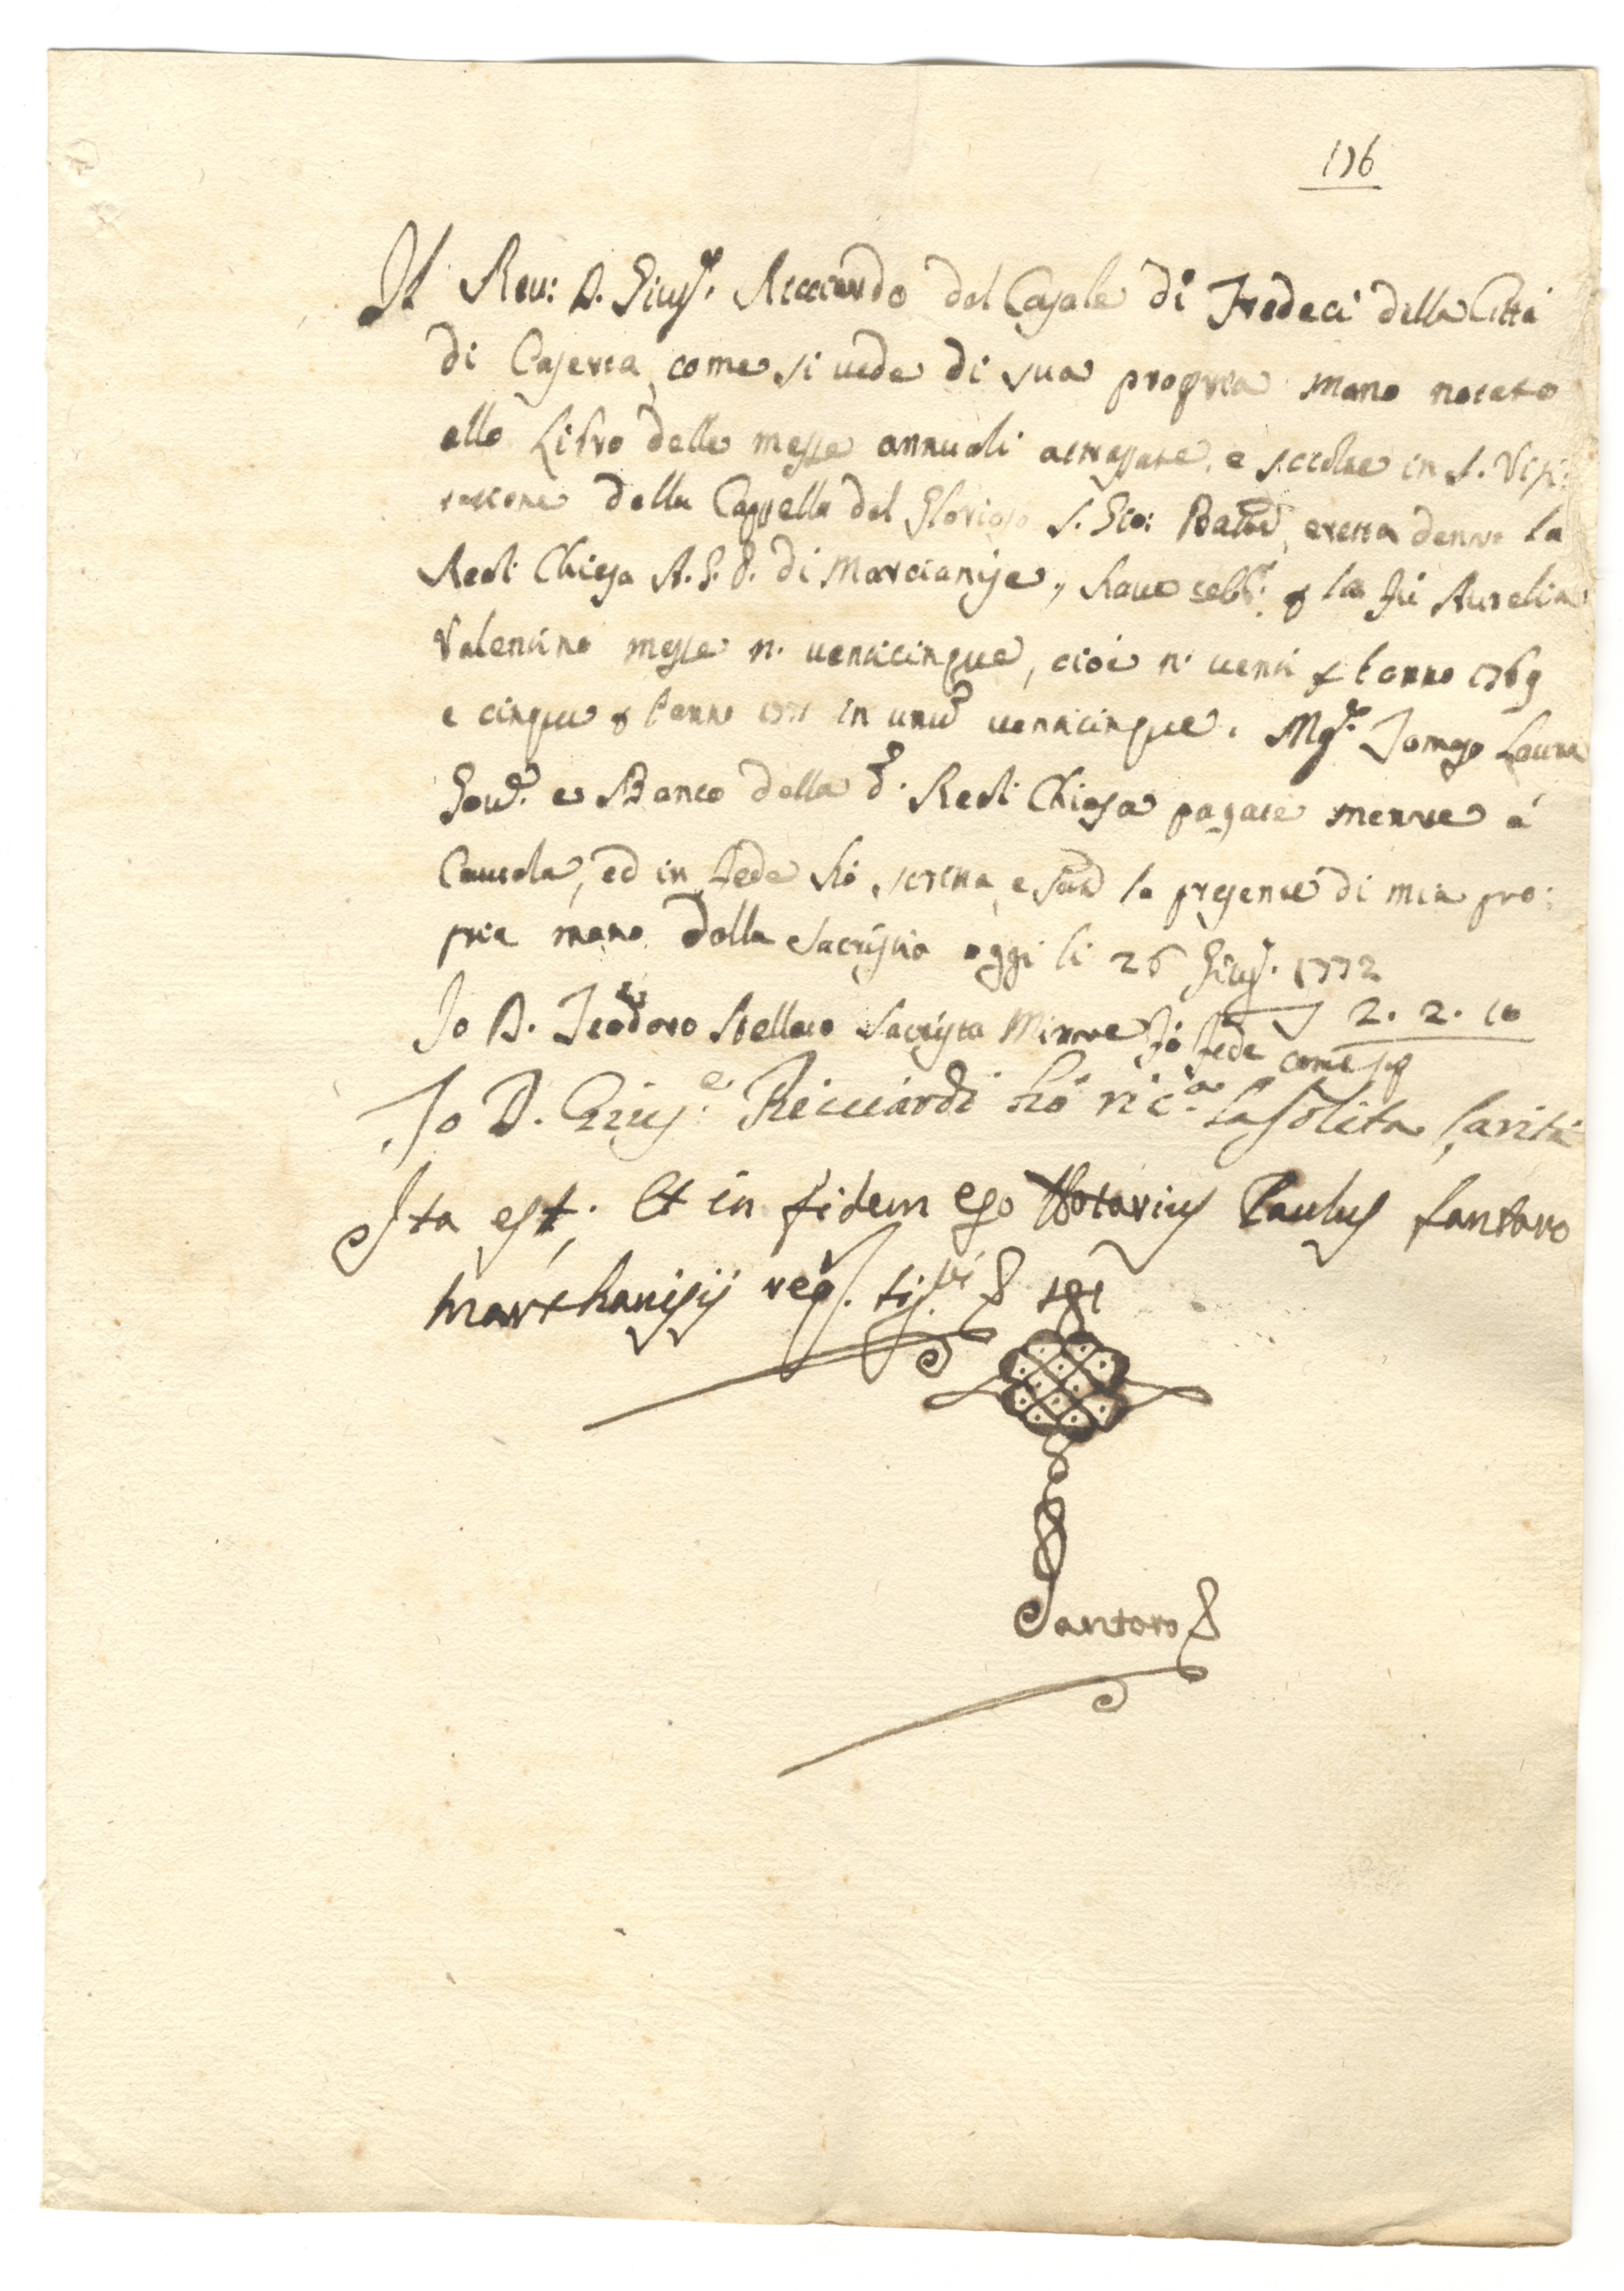 176
Il Rev: D. Gius.e Ricciardo del Casale di Tredeci della Città
di Caserta, come si vede di sua propria mano notato
allo Libro delle messe annuali attrassate, e sciolte in S. Visi:
tatione della Cappella del Glorioso S. Gio: Batta, eretta dentro la
Real Chiesa A. G. P. di Marcianise, have celb.e per la fù Aurelia
Valentino messe n. venticinque, cioè n. venti per l'anno 1769
e cinque per l'anno 1771 in unum venticinque. Mg.co Tomaso Laura
Gov.e e Banco della d.a Real Chiesa pagate mentre à
Cautela, ed in fede hò scritta, e la presente di mia pro:
pria mano dalla Sacristia oggi li 26 Giug. 1772
2. 2. 10
Io D. Teodoro Stellato Sacrista Minore fò fede come sop
Io D. Gius.e Ricciardi hò ric.a la solita Carità
Ita est; Et in fidem ego Notarius Paulus Santoro
Marchanisij req.
Santoro